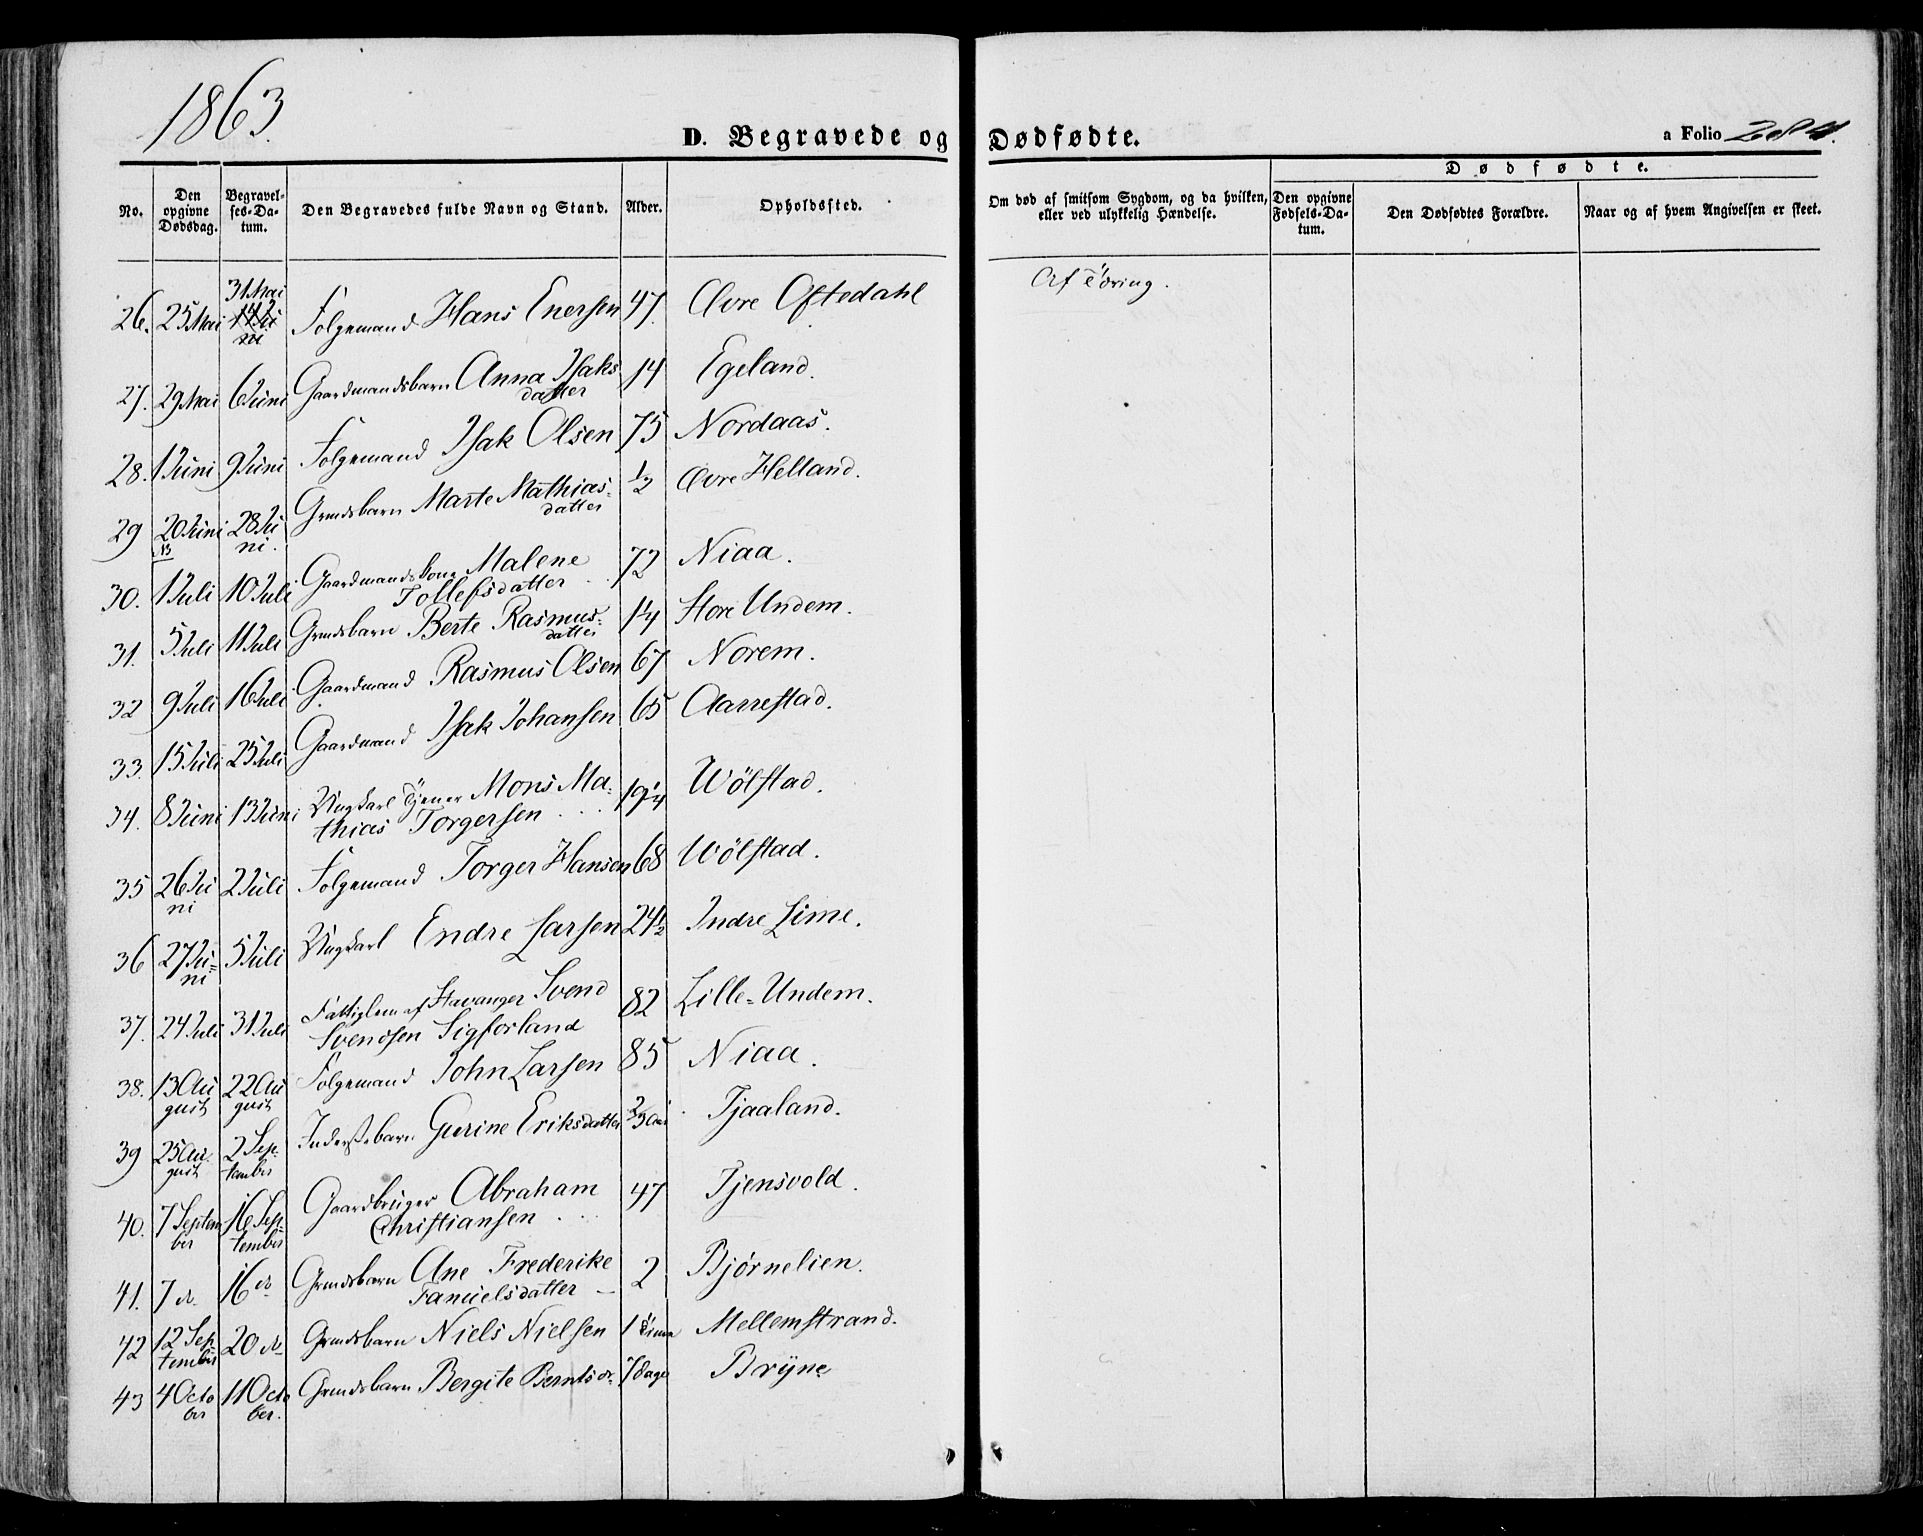 1863.
D. Begravede og Dødfødte.
a Folio 284.
No. | Den opgivne Dødsdag. | Begravelses-Datum. | Den Begravedes fulde Navn og Stand. | Alder. | Opholdssted. | Om død af smitsom Sygdom, og da hvilken, eller ved ulykkelig Hændelse. | Dødfødte. | Den opgivne Fødsels-Datum. | Den Dødfødtes Forældre. | Naar og af hvem Angivelsen er skeet.
26. 25 Mai 31 Mai Folgemand Hans Enersen 47. Øvre Oftedahl Af Töring.
27. 29 Mai 6 Juni Gaardmandsbarn Anna Isaks
datter 14 Egeland.
28. 1 Juni 9 Juni Folgemand Isak Olsen 75 Nordaas.
29 20 Juni 28 Ju
ni. Grmdsbarn Marte Mathias-
datter 1/2 Øvre Helland.
30. 1 Juli 10 Juli Gaardmandskone Malene
Tollefsdatter 72 Niaa.
31. 5 Juli 11 Juli Grmdsbarn Berte Rasmus-
datter 1 1/4 Store Undem.
32 9 Juli 16 Juli Gaardmand Rasmus Olsen 67 Norem.
33. 15 Juli 25 Juli Gaardmand Isak Johansen 65 Aarrestad.
34. 8 Juni 13 Juni Ungkarl Tjener Mons Ma-
thias Torgersen 19 1/4 Wölstad.
35 26 Ju
ni 2 Juli Folgemand Torger Hansen 68 Wölstad.
36 27 Ju-
ni 5 Juli Ungkarl Endre Larsen 24 1/2 Indre Lime.
37. 24 Juli 31 Juli Fattiglem af Stavanger Svend
Svendsen Sigforland 82 Lille-Undem.
38. 13 Au
gust 22 Au
gust Folgemand John Larsen 85 Niaa.
39 25 Au
gust 2 Sep
tember Inderstebarn Gurine Eriksdatter Tjaaland.
40. 7 Septem
ber 16 Sep-
tember Gaardbruger Abraham
Christiansen 47 Tjensvold.
41. 7 d. 16 d. Grmdsbarn Ane Frederike
Fanuelsdatter 2 Bjørnelien.
42 12 Sep
tember 20 d. Grmdsbarn Niels Nielsen 1 Time Mellemstrand.
43 4 Octo
ber 11 Octo
ber. Grmdsbarn Bergite Berntsdr. 7 Dage Bryne